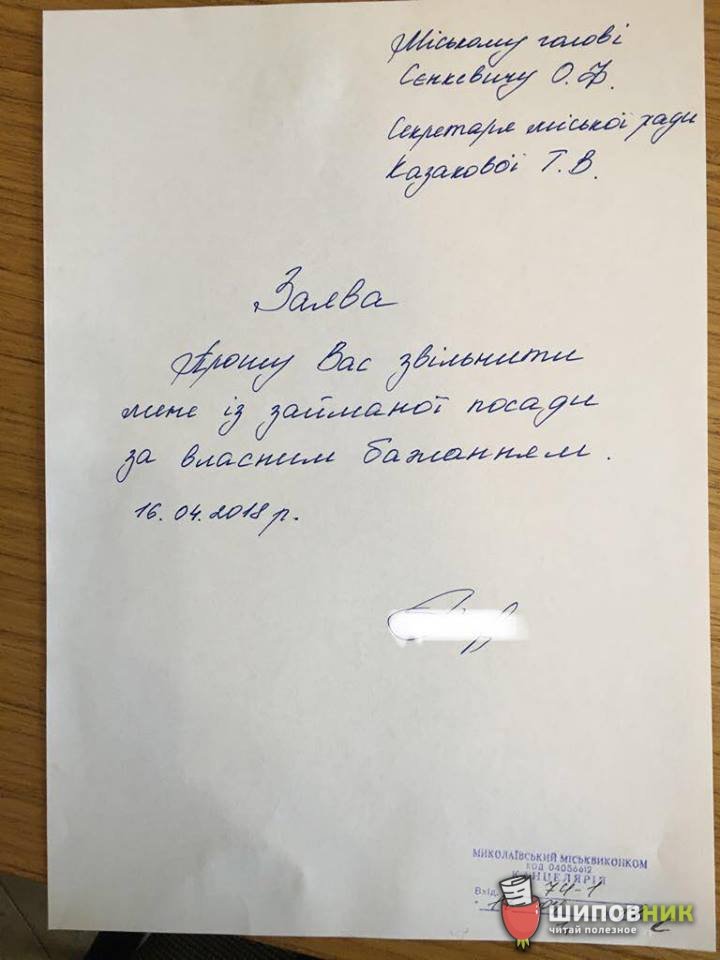 Міському голові
Сєнкевичу О.Ф.
Секретаря міської ради
Казакової Т.В.
Заява
Прошу Вас звільнити
мене із займаної посади
за власним бажанням.
16.04.2018 р.
МИКОЛАЇВСЬКИЙ МІСЬКВИКОНКОМ
КОД 04056612
КАНЦЕЛЯРІЯ
Вхід.
74-1
ШИПОВНИК
читай полезное